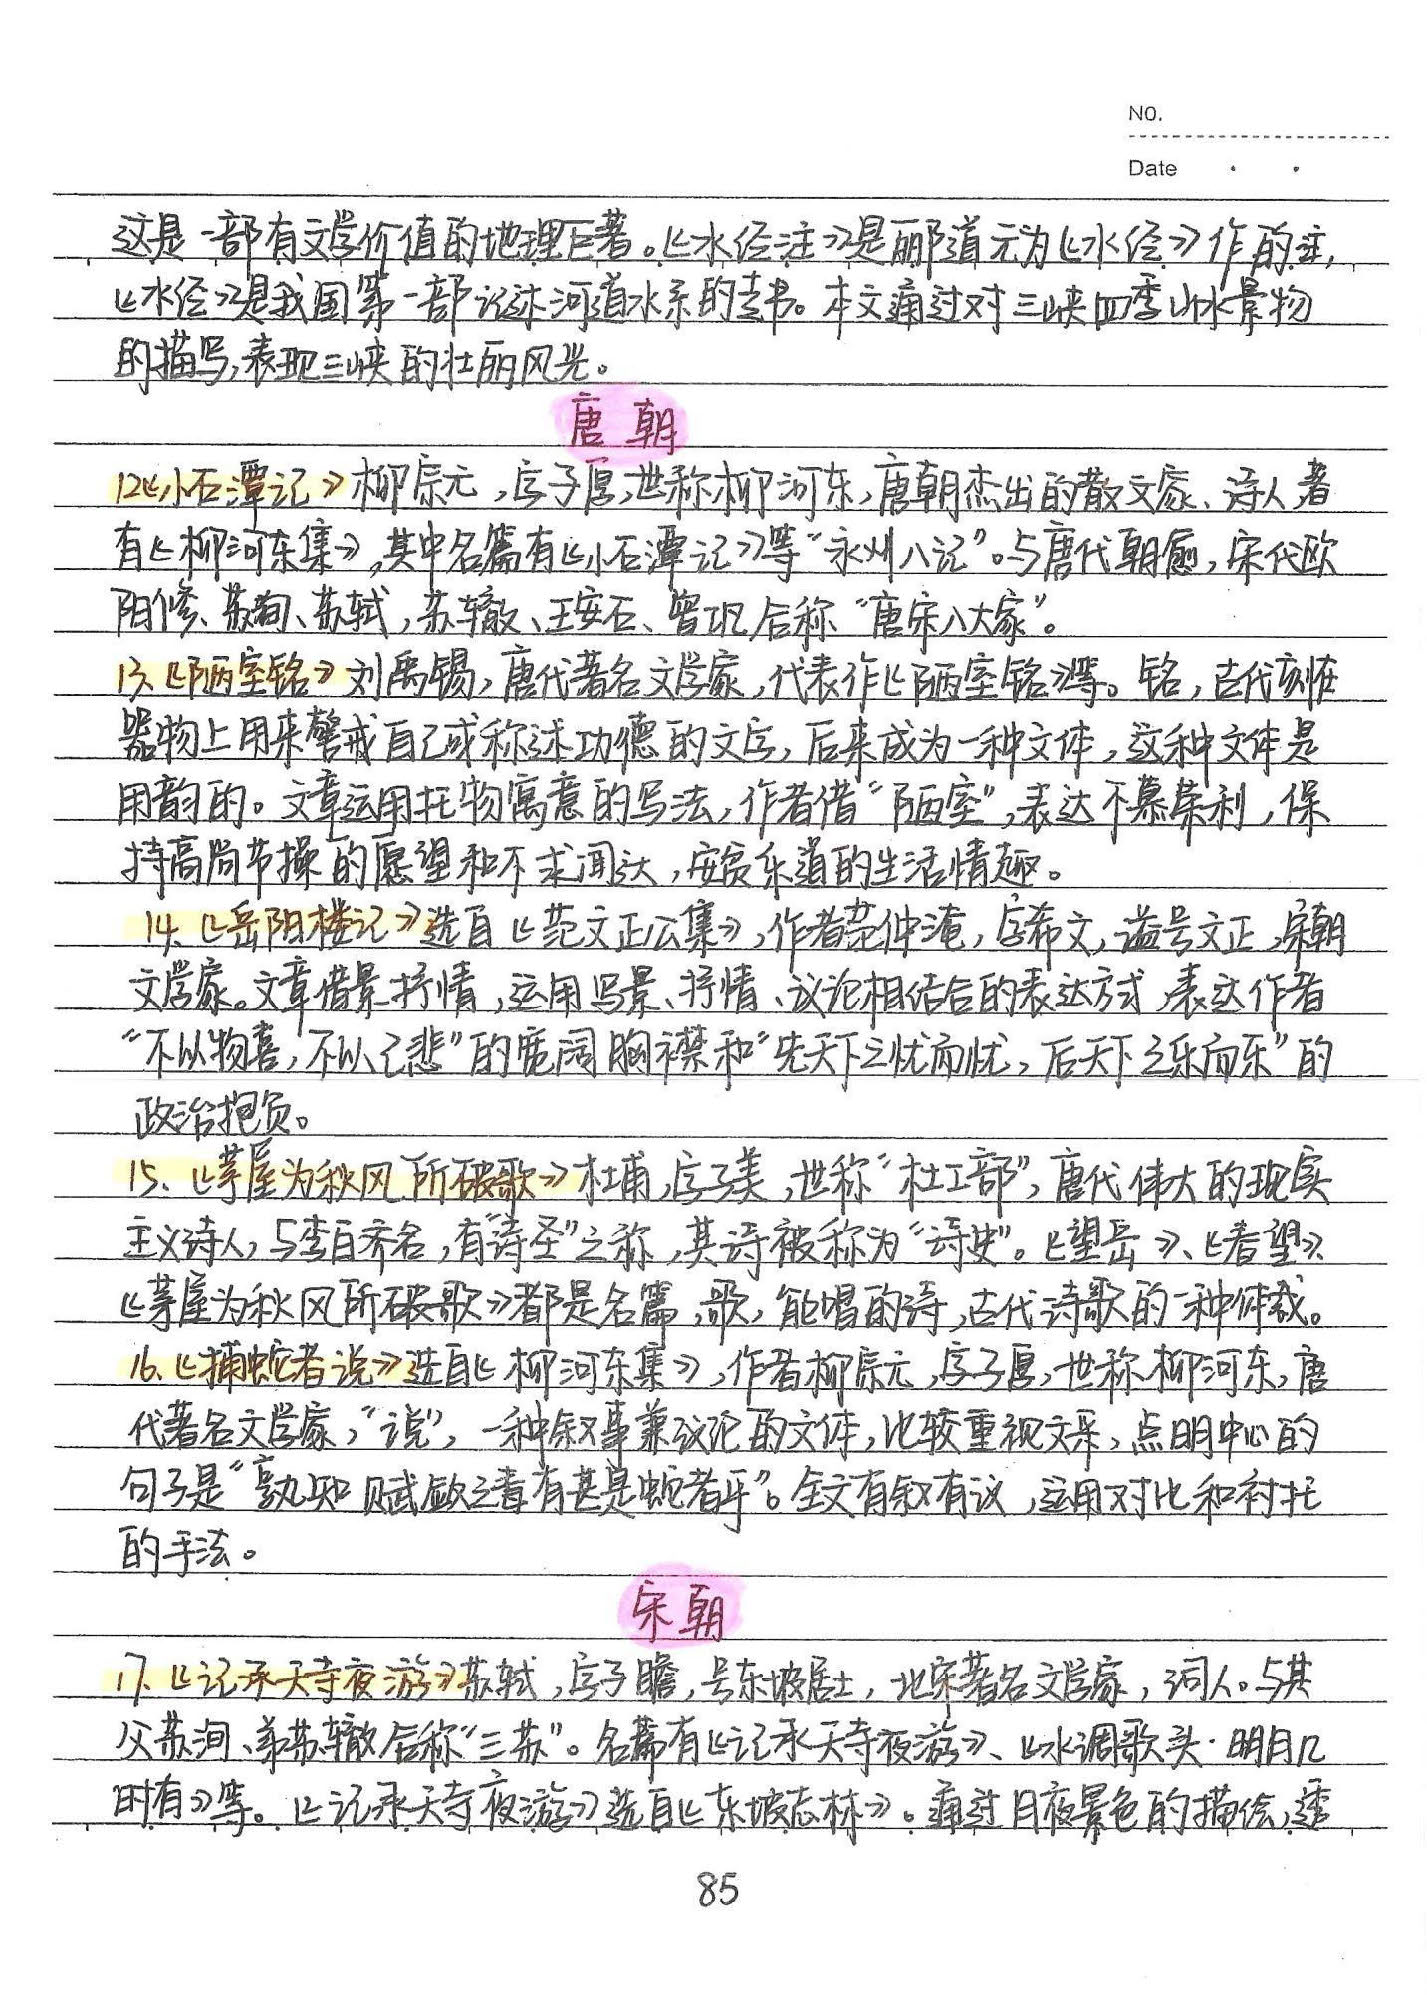 NO.
Date
这是一部有文学价值的地理巨著。《水经注》是郦道元为《水经》作的注,
《水经》是我国第一部记述河道水系的专书。本文通过对三峡四季山水景物
的描写,表现三峡的壮丽风光。
唐朝
12《小石潭记》柳宗元,字子厚,世称柳河东,唐朝杰出的散文家、诗人著
有《柳河东集》,其中名篇有《小石潭记》等“永州八记”。与唐代朝愈,宋代欧
阳修、苏洵、苏轼,苏辙、王安石、曾巩合称“唐宋八大家”。
13、《陋室铭》刘禹锡,唐代著名文学家,代表作《陋室铭》等。铭,古代刻在
器物上用来警戒自己或称述功德的文字,后来成为一种文体,这种文体是
用韵的。文章运用托物寓意的写法,作者借“陋室”,表达不慕荣利,保
持高尚节操的愿望和不求闻达,安贫乐道的生活情趣。
14、《岳阳楼记》选自《范文正公集》,作者范仲淹,字希文,谥号文正,宋朝
文学家。文章借景抒情,运用写景、抒情、议论相结合的表达方式,表达作者
“不以物喜,不以己悲”的宽阔胸襟和“先天下之忧而忧,后天下之乐而乐”的
政治抱负。
15、《茅屋为秋风所破歌》杜甫,字子美,世称“杜工部”,唐代伟大的现实
主义诗人,与李白齐名,有“诗圣”之称,其诗被称为“诗史”。《望岳》、《春望》、
《茅屋为秋风所破歌》都是名篇,歌,能唱的诗,古代诗歌的一种体裁。
16、《捕蛇者说》:选自《柳河东集》,作者柳宗元,字子厚,世称柳河东,唐
代著名文学家,“说”,一种叙事兼议论的文体,比较重视文采,点明中心的
句子是“孰知赋敛之毒有甚是蛇者乎”。全文有叙有议,运用对比和衬托
的手法。
宋朝
17、《记承天寺夜游》苏轼,字子瞻,号东坡居士,北宋著名文学家,词人。与其
父苏洵、弟苏辙合称“三苏”。名篇有《记承天寺夜游》、《水调歌头·明月几
时有》等。《记承天寺夜游》选自《东坡志林》。通过月夜景色的描绘,透
85